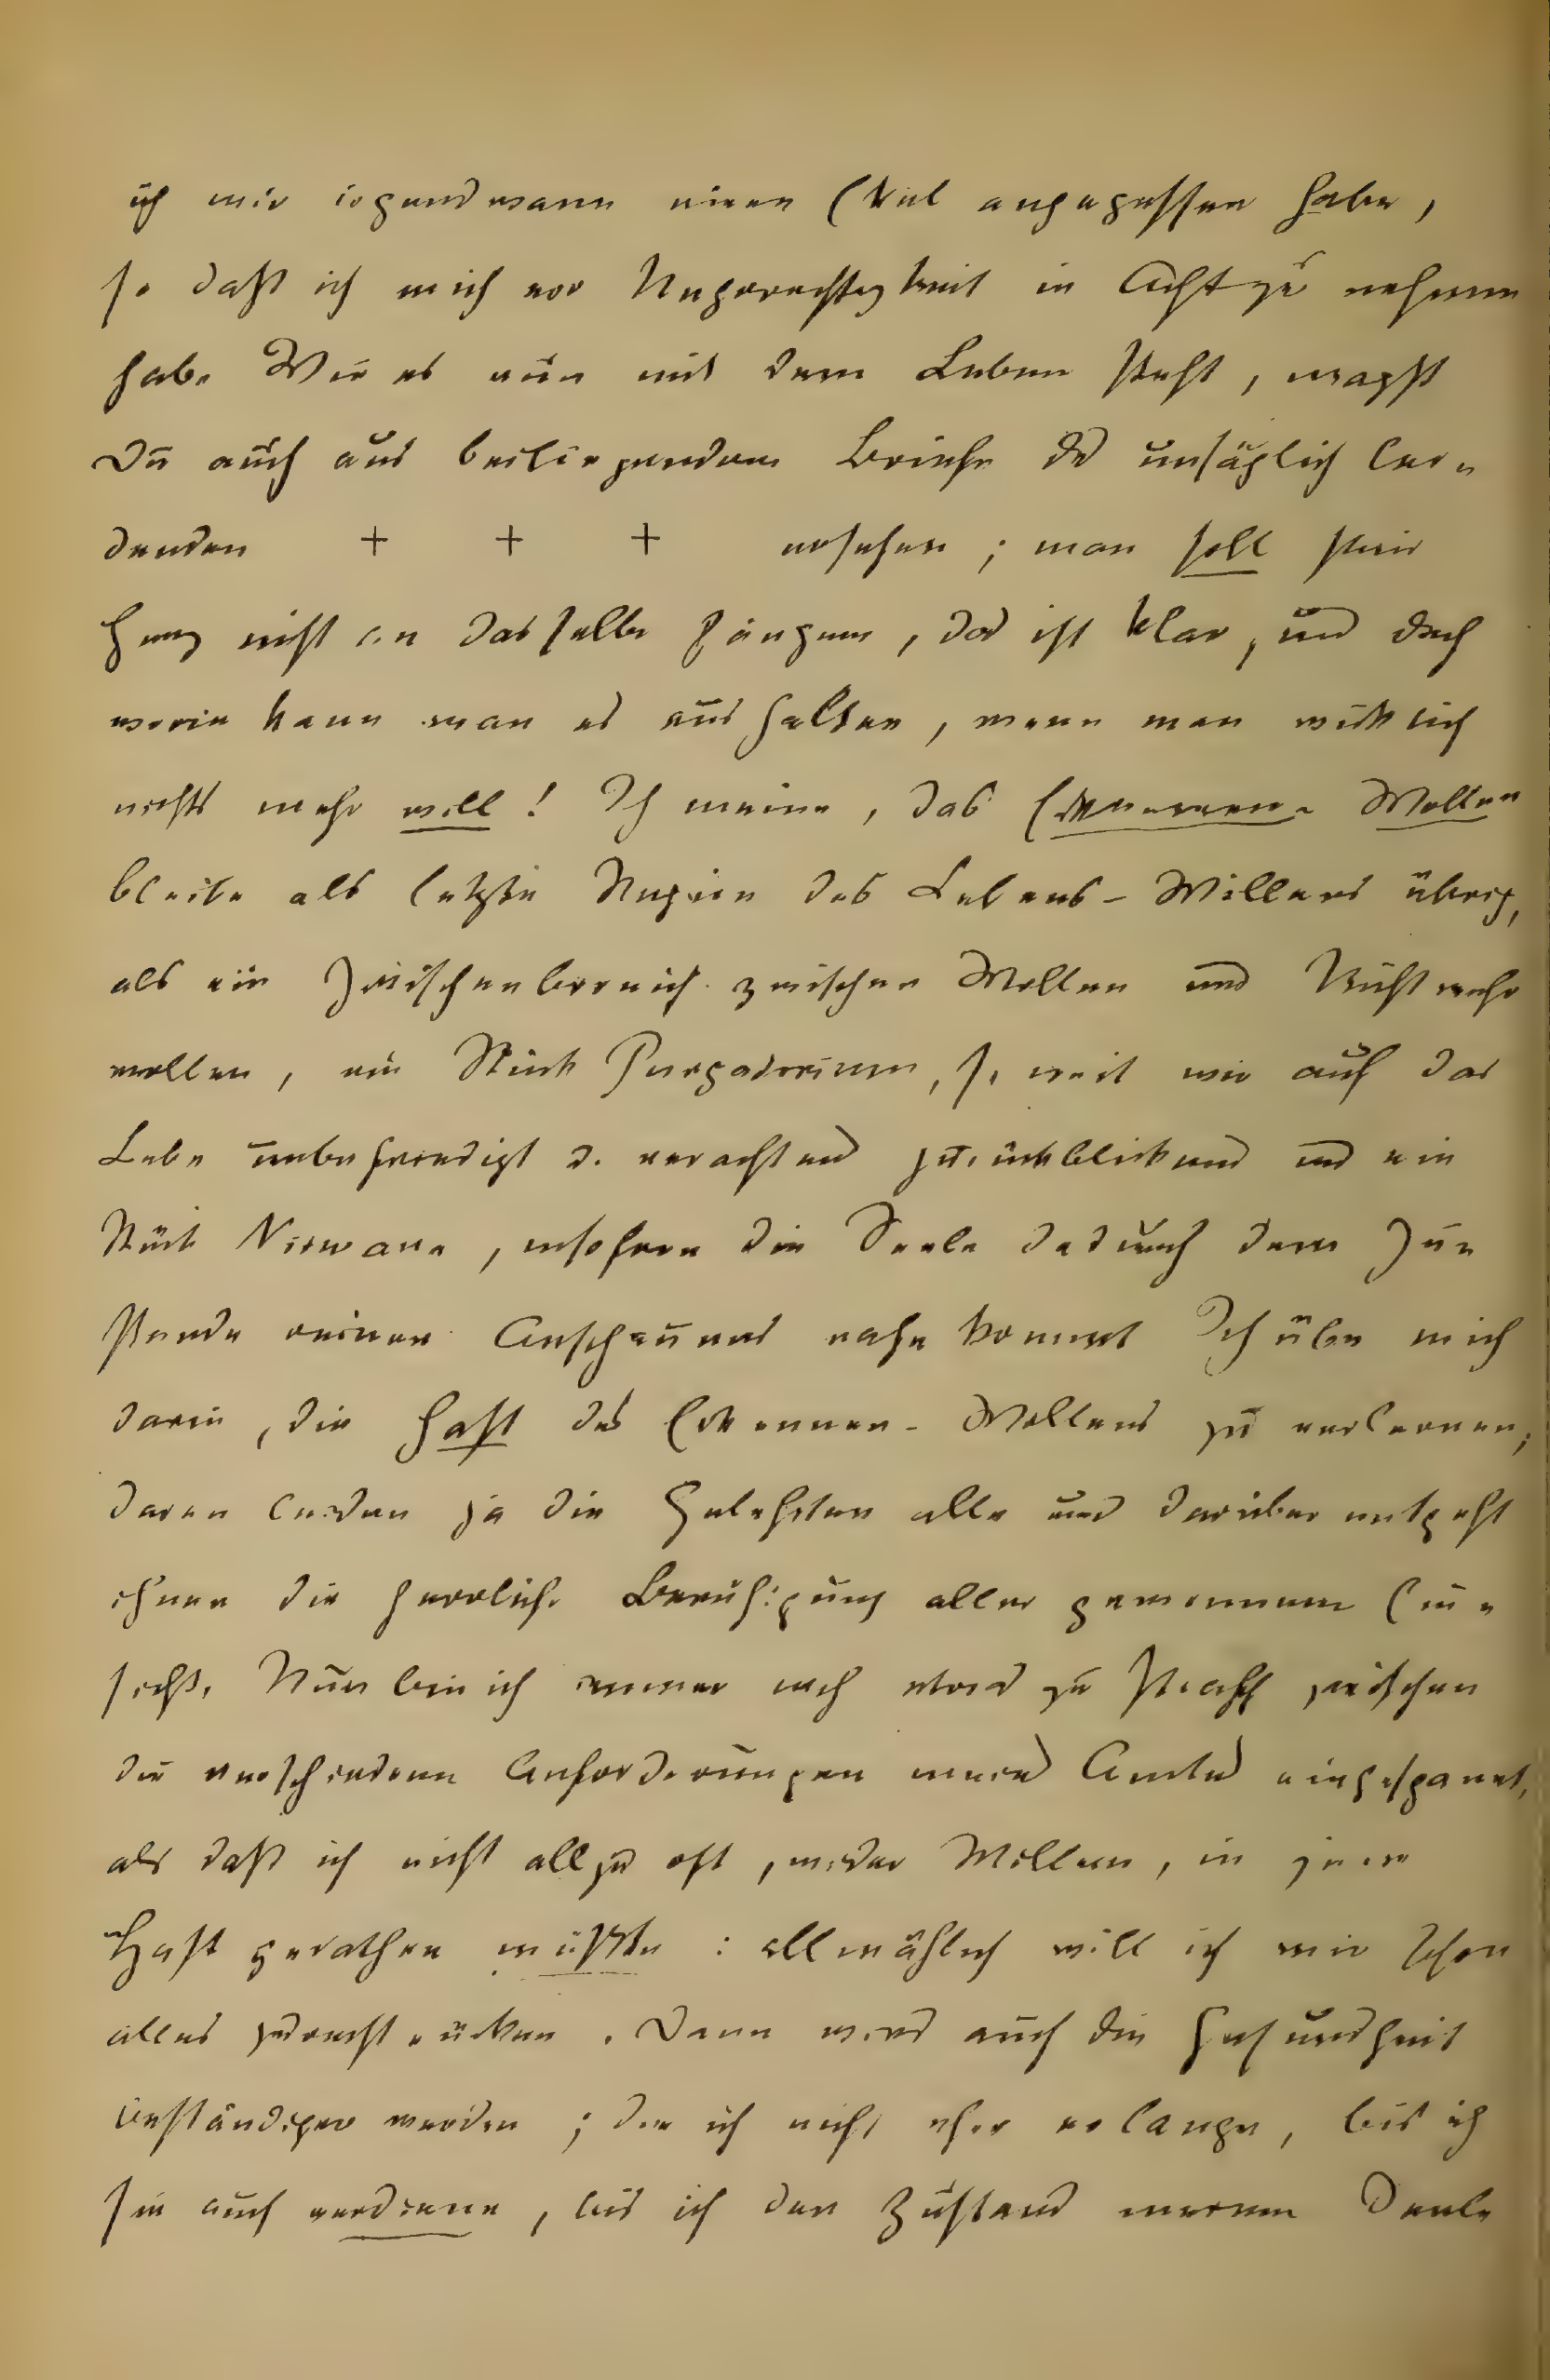 ich mir irgendwann einen Ekel angegessen habe,
so daß ich mich vor Ungerechtigkeit in Acht zu nehmen
habe. Wie es nun mit dem Leben steht, magst
Du auch aus beiliegendem Briefe des unsäglich lei-
denden + + + ersehen; man soll sein
Herz nicht an dasselbe hängen, das ist klar, und doch
worin kann man es aushalten, wenn man wirklich
nichts mehr will! Ich meine, das Erkennen-Wollen
bleibe als letzte Region des Lebens-Willens übrig,
als ein Zwischenbereich zwischen Wollen und Nichtmehr
wollen, ein Stück Purgatorium, so weit wir auf das
Leben unbefriedigt u. verachtend zurückblickend und ein
Stück Nirwana, insofern die Seele dadurch dem Zu-
stande reinen Anschauens nahe kommt. Ich übe mich
darin, die Hast des Erkennen-Wollens zu verlernen;
daran leiden ja die Gelehrten alle und darüber entgeht
ihnen die herrliche Beruhigung aller gewonnenen Ein-
sicht. Nun bin ich immer noch etwas zu straff zwischen
die verschiedenen Anforderungen meines Amtes eingespannt,
als daß ich nicht allzu oft, wider Willen, in jene
Hast gerathen müßte: allmählich will ich mir schon
alles zurechtrücken. Dann wird auch die Gesundheit
beständiger werden; die ich nicht eher erlange, bis ich
sie auch verdiene, bis ich den Zustand meiner Seele